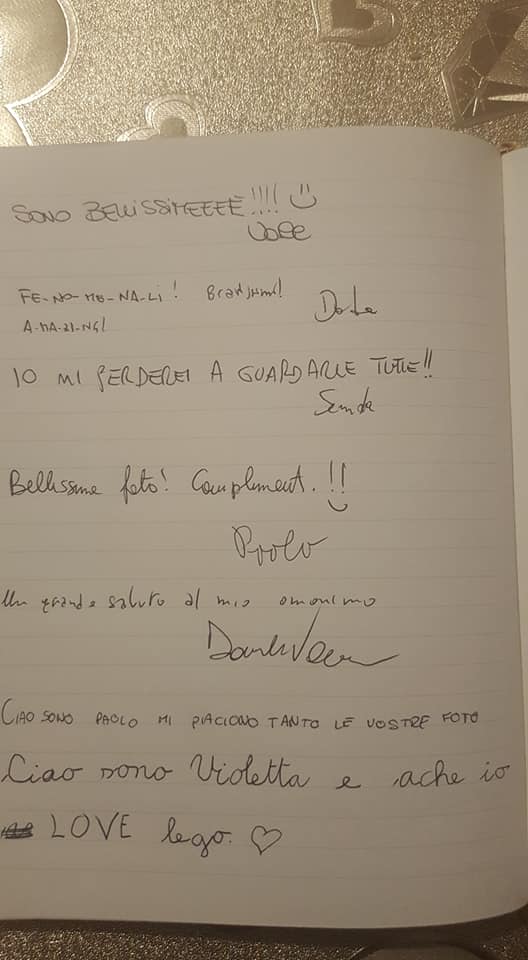 SONO BELLISSIMEEEE!!!! :)
FE-NO-ME-NA-LI!
A-MA-ZI-NG!
IO MI PERDEREI A GUARDARLE TUTTE!!
Bellissime foto! Complimenti!!
Paolo
Un grande saluto al mio omonimo
CIAO SONO PAOLO MI PIACIONO TANTO LE VOSTRE FOTO
Ciao sono Violetta e ache io
LOVE lego. ♡